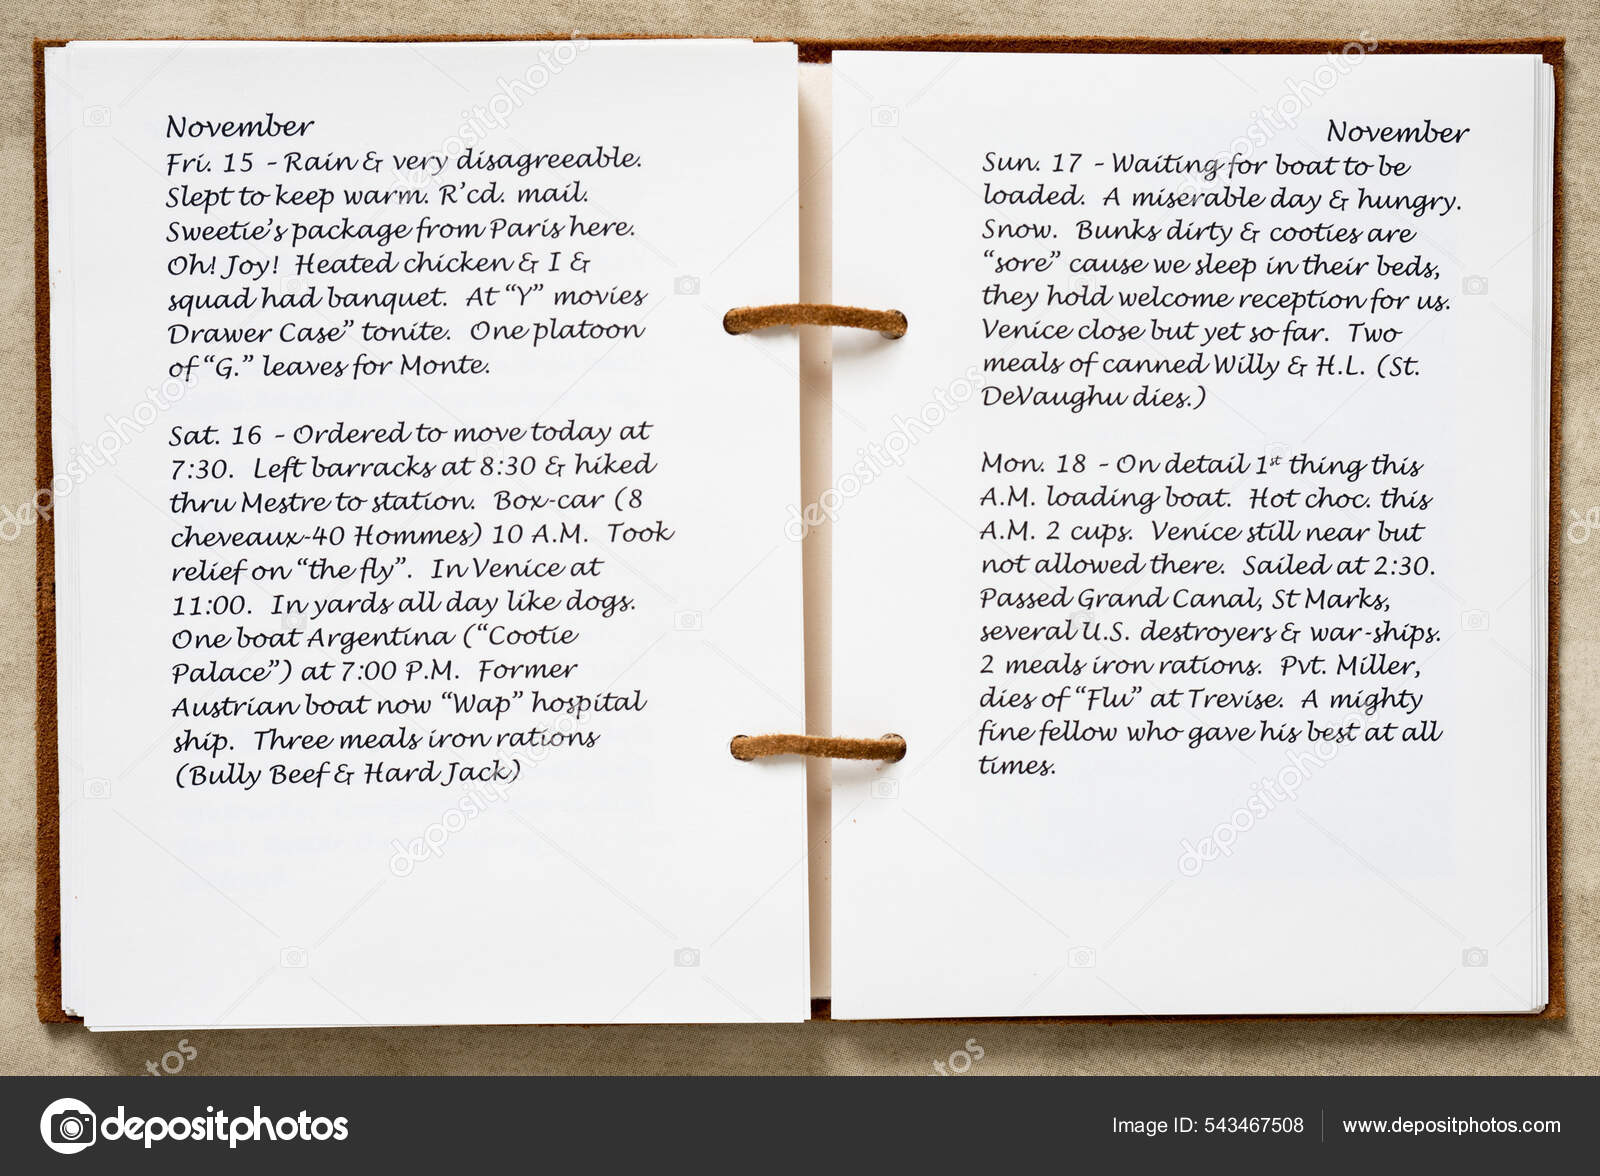 November
Fri. 15 - Rain & very disagreeable.
Slept to keep warm. R'cd. mail.
Sweetie's package from Paris here.
Oh! Joy! Heated chicken & I &
squad had banquet. At "Y" movies
Drawer Case" tonite. One platoon
of "G." leaves for Monte.
Sat. 16 - Ordered to move today at
7:30. Left barracks at 8:30 & hiked
thru Mestre to station. Box-car (8
cheveaux-40 Hommes) 10 A.M. Took
relief on "the fly". In Venice at
11:00. In yards all day like dogs.
One boat Argentina ("Cootie
Palace") at 7:00 P.M. Former
Austrian boat now "Wap" hospital
ship. Three meals iron rations
(Bully Beef & Hard Jack)
November
Sun. 17 - Waiting for boat to be
loaded. A miserable day & hungry.
Snow. Bunks dirty & cooties are
"sore" cause we sleep in their beds,
they hold welcome reception for us.
Venice close but yet so far. Two
meals of canned Willy & H.L. (St.
DeVaughu dies.)
Mon. 18 - On detail 1st thing this
A.M. loading boat. Hot choc. this
A.M. 2 cups. Venice still near but
not allowed there. Sailed at 2:30.
Passed Grand Canal, St Marks,
several U.S. destroyers & war-ships.
2 meals iron rations. Pvt. Miller,
dies of "Flu" at Trevise. A mighty
fine fellow who gave his best at all
times.
depositphotos
Image ID: 543467508 www.depositphotos.com